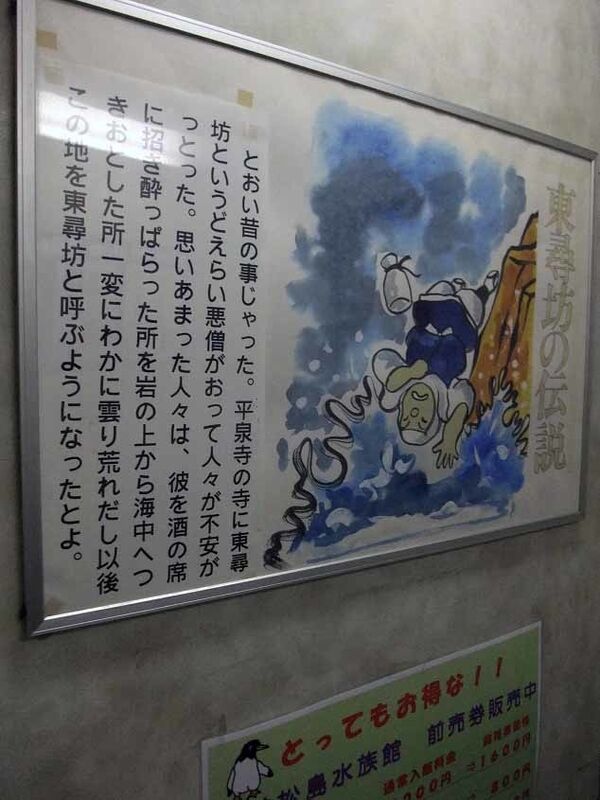 東尋坊の伝説
とおい昔の事じゃった。平泉寺の寺に東尋
坊というどえらい悪僧がおって人々が不安が
っとった。思いあまった人々は、彼を酒の席
に招き酔っぱらった所を岩の上から海中へつ
きおとした所一変にわかに雲り荒れだし以後
この地を東尋坊と呼ぶようになったとよ。
とってもお得な!!
松島水族館 前売券販売中
通常入館料金
000円 ⇒ 1600円